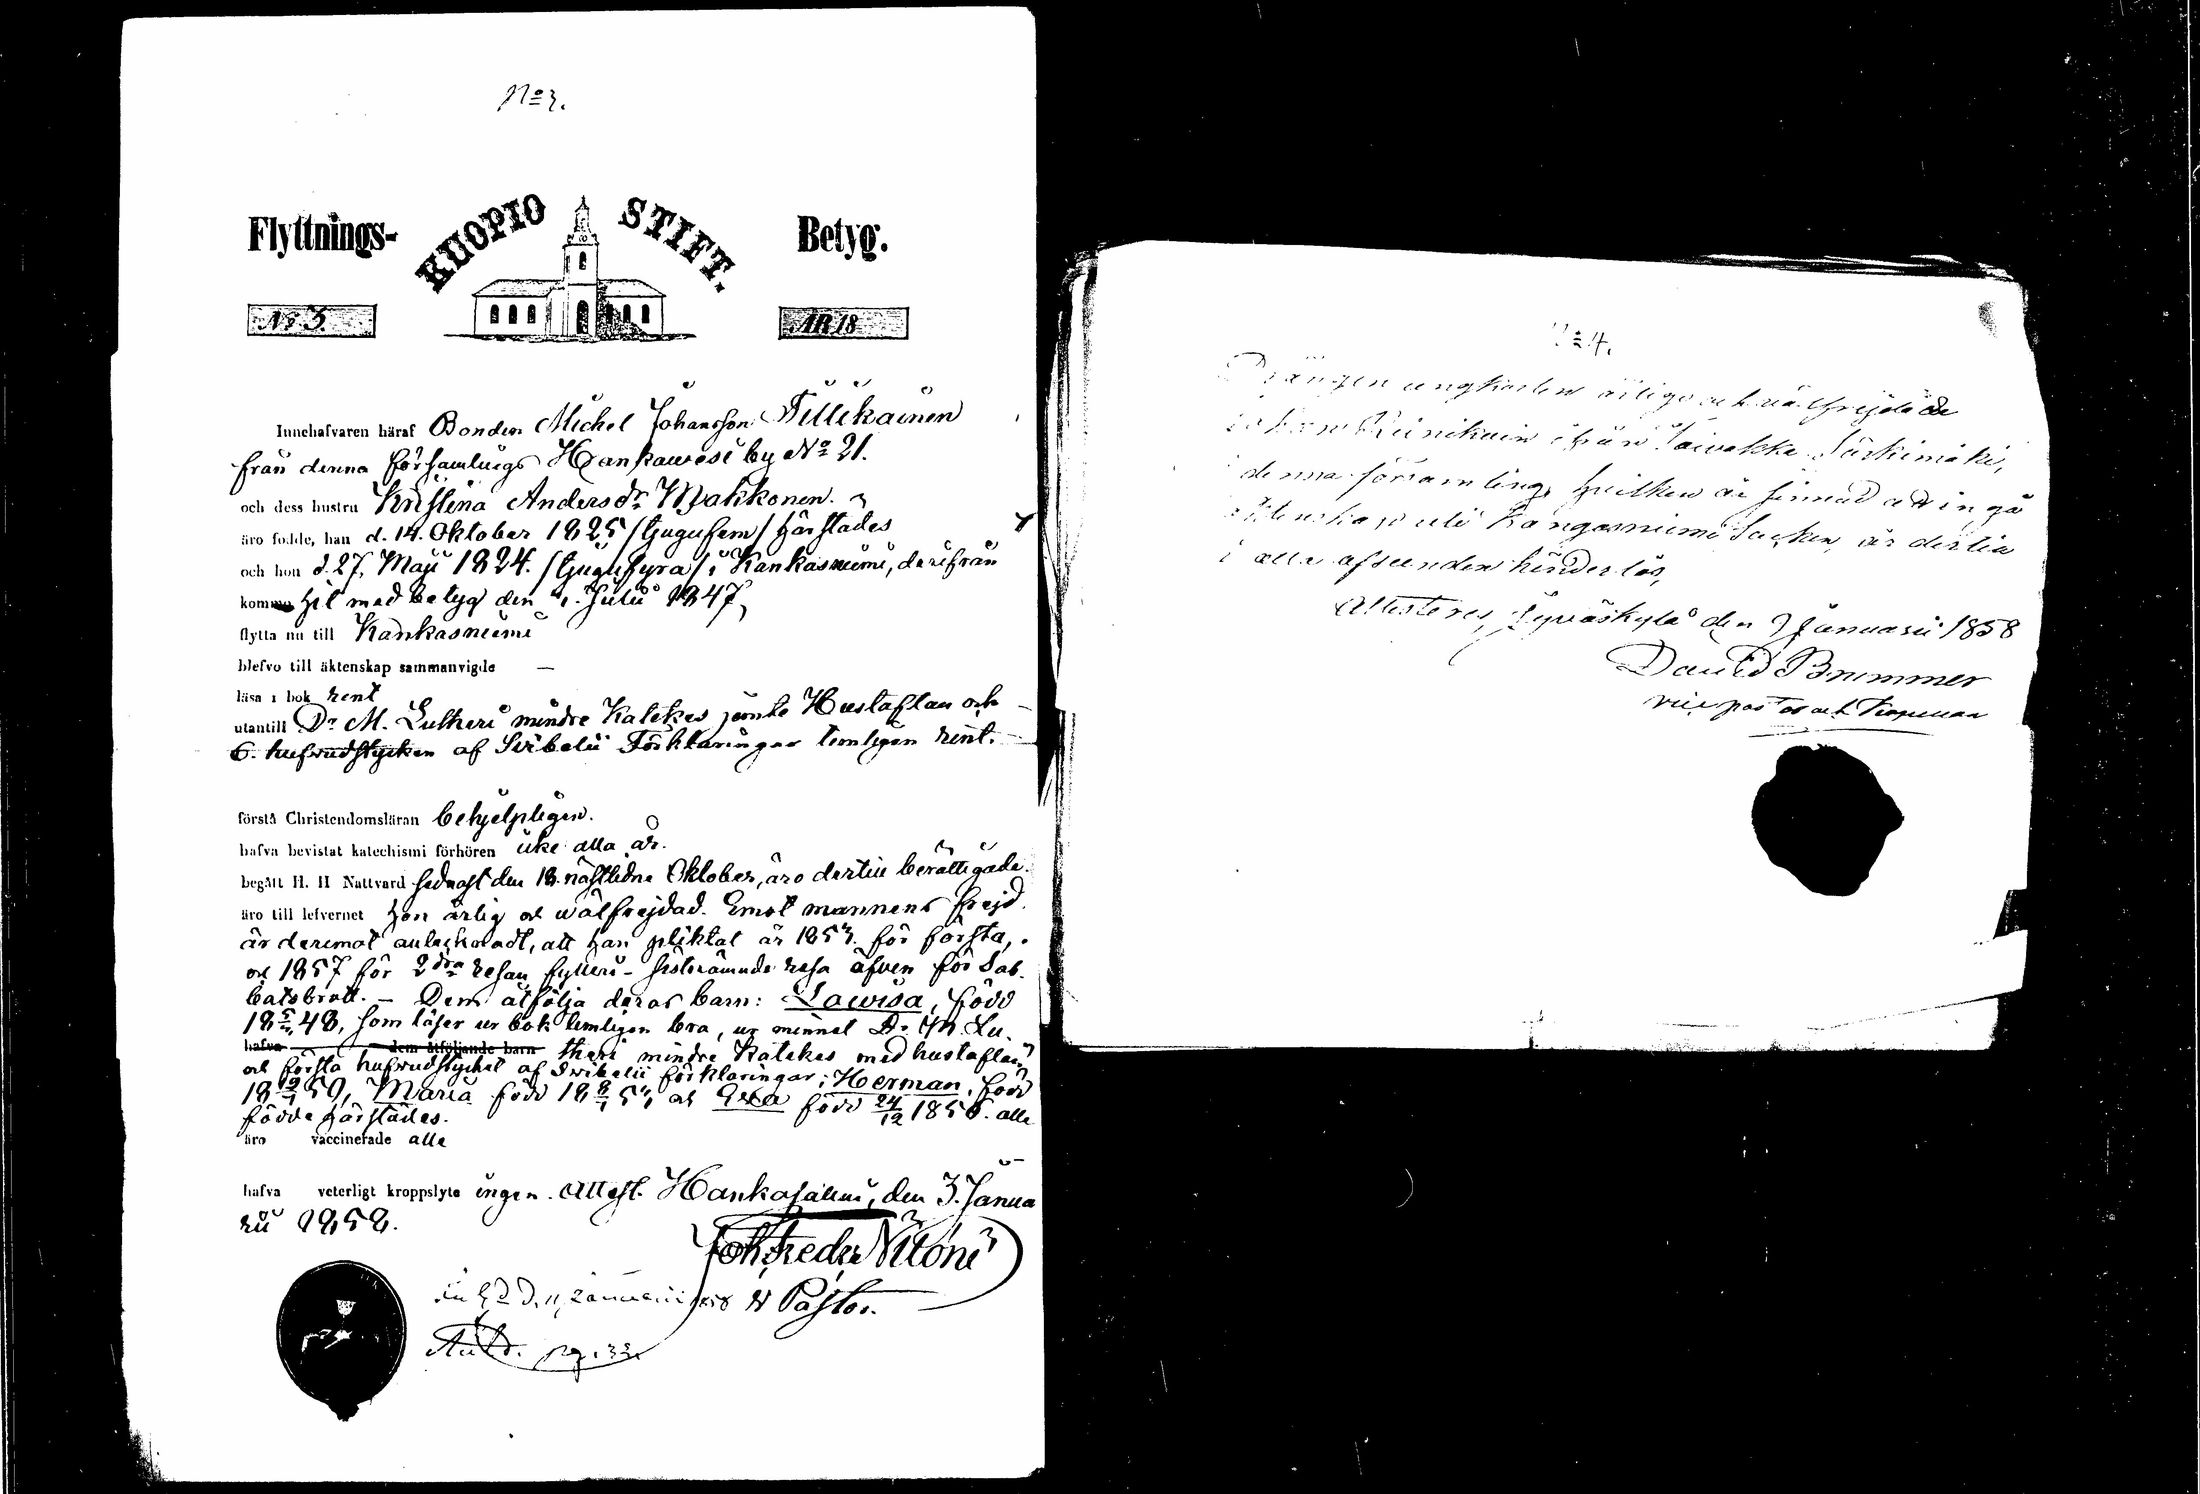 No 3.
Flyttnings- KUOPIO STIFT. Betyg.
No 3. ÅR 18
Innehafvaren häraf Bonden Michel Johansson Tillikainen
från denna församlings Hankavesi by No 21.
och dess hustru Kristina Andersdr Makkonen.
äro födde, han d. 14. Oktober 1825 /tjugufem/ härstädes
och hon d. 27. Maji 1824. /tjugufyra/ i Kankasniemi, derifrån
komne hit med betyg den 1. Julii 1847,
flytta nu till Kankasniemi
blefvo till äktenskap sammanvigde —
läsa i bok rent
utantill Dr M. Lutheri mindre Katekes jemte Hustaflan och
6. hufvudstycken af Svebelii Förklaringar temligen rent.
förstå Christendomsläran behjelpligen.
hafva bevistat katechismi förhören icke alla år.
begått H. H Nattvard sednast den 18. nästledne Oktober, äro dertill berättigade.
äro till lefvernet hon ärlig och wälfrejdad. Emot mannens frejd
är deremot anteknadt, att han pliktat år 1853. för första,
och 1857 för 2dra resan fylleri - sistnämnde resa äfven för Sab-
batsbrott. — Dem åtfölja deras barn: Lowisa, född
48, som läser ur bok temligen bra, ur minnet Dr M. Lu-
hafva dem åtföljande barn theri mindre Katekes med hustaflan
och första hufvudstycket af Svebelii förklaringar; Herman, född
Maria född och Eva född 24/12 1856. alla
födde härstädes.
äro vaccinerade alla
hafva veterligt kroppslyte ingen. Attest. Hankasalmi, den 3. Janua
rii 1858.
Joh. Fredr. Nitoni
Pastor.
d. 11 Januarii 1858
pg. 33.
No 4.
Drängen ungkarlen ärlige och välfrejdade
Johan Reinikain ifrån Toivakka Särkimäki,
i denna församling, hvilken är sinnad at ingå
äktenskap uti Kangasniemi Socken, är dertill
i alla afseenden hinderlös,
Attesteras, Jyväskylä den 9 Januarii 1858
David Brummer
vice pastor och Kapellan